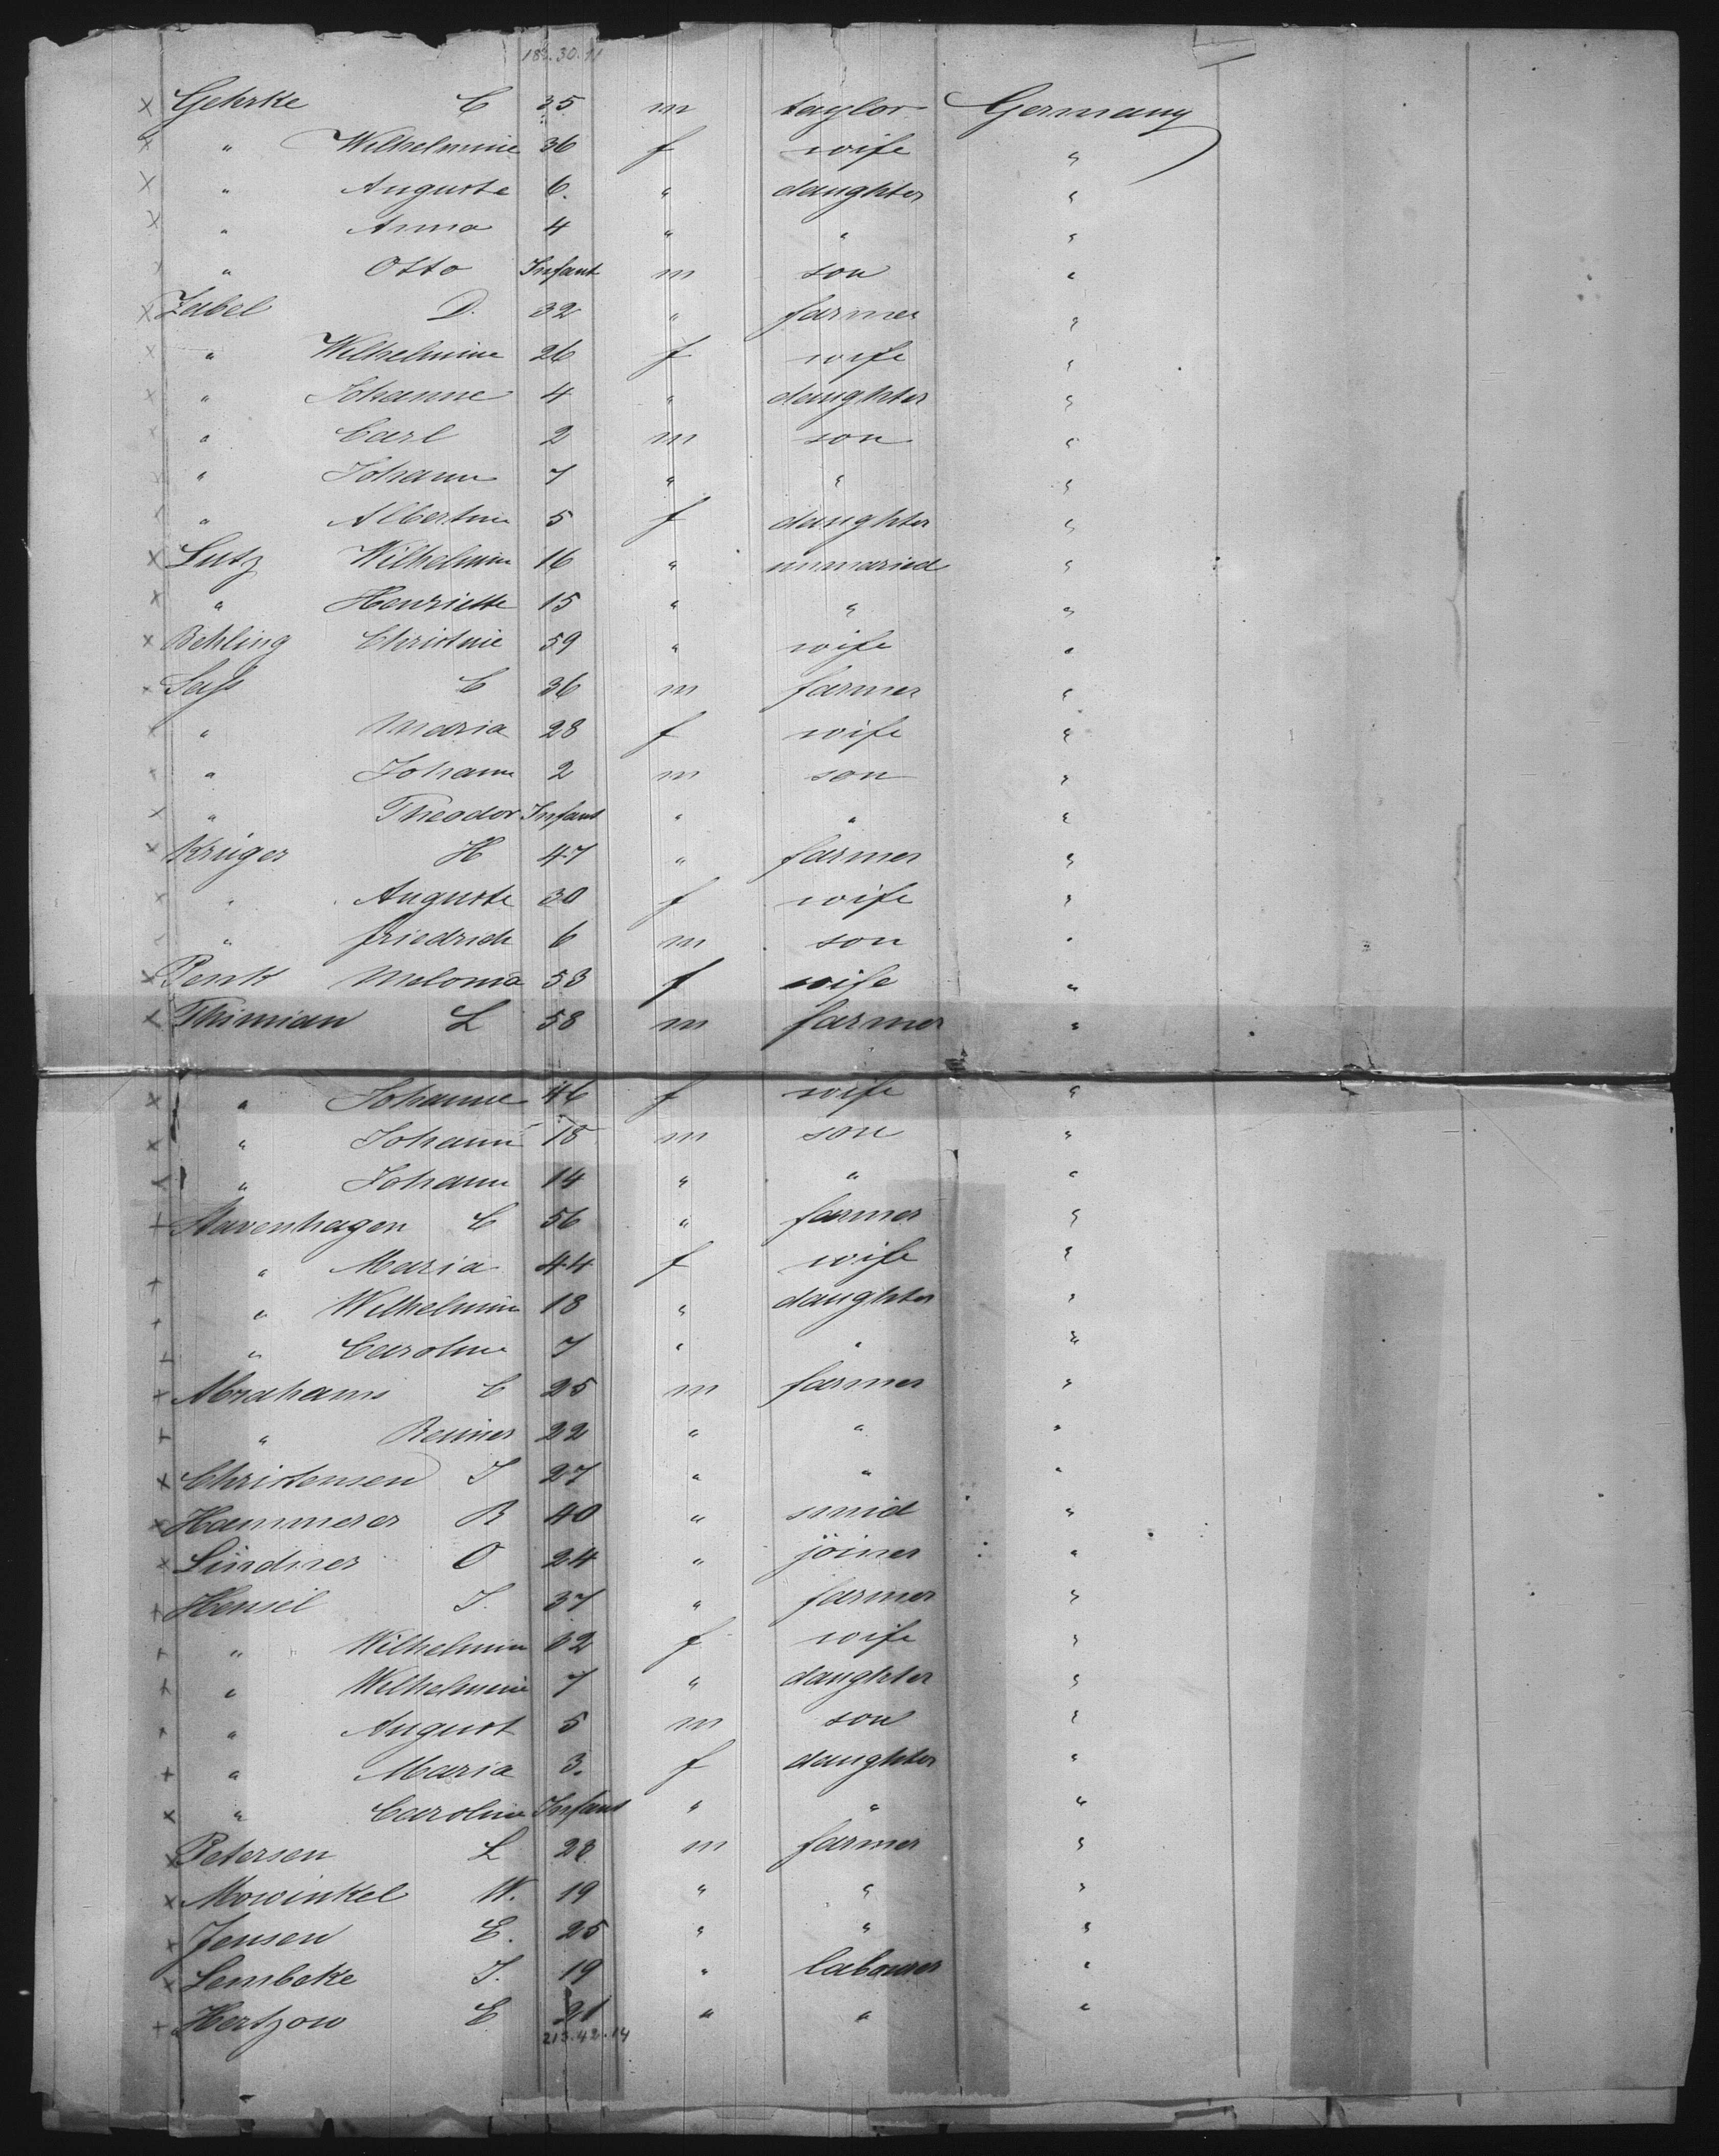 18 . 30. 11
x Gehrke C 35 m taylor Germany
x " Wilhelmine 36 f wife "
x " Auguste 6. " daughter "
x " Anna 4 " " "
" Otto Infant m son "
x Zabel D. 32 " farmer "
x " Wilhelmine 26 f wife "
x " Johanne 4 " daughter "
x " Carl 2 m son "
x " Johann 7 " " "
" Albertine 5 f daughter "
x Lutz Wilhelmine 16 " unmaried "
x " Henriette 15 " " "
x Behling Christine 59 " wife "
x C 36 m farmer "
x " Maria 28 f wife "
x " Johann 2 m son "
x " Theodor Infant " " "
x Krüger H 47 " farmer "
x " Auguste 30 f wife "
" friedrich 6 m son "
x Penk Meloma 53 f wife "
x Thimian L 58 m farmer "
x " Johanne 46 f wife "
x " Johann 18 m son "
x " Johann 14 " " "
x Stavenhagen C 56 " farmer "
x " Maria 44 f wife "
x " Wilhelmine 18 " daughter "
x " Caroline 7 " " "
x Abrahams C 25 m farmer "
x " Reimer 22 " " "
x Christensen J 27 " " "
x Hammerer B 40 " smid "
x Lindner O 24 " joiner "
x Hensel J. 37 " farmer "
x " Wilhelmine 32 f wife "
x " Wilhelmine 7 " daughter "
x " August 5 m son "
x " Maria 3. f daughter "
x " Caroline Infant " " "
x Petersen L 28 m farmer "
x Mowinkel W. 19 " " "
x Jensen E. 25 " " "
x Lembcke J. 19 " labourer "
x Hertzow E 21 " " "
213.42.14